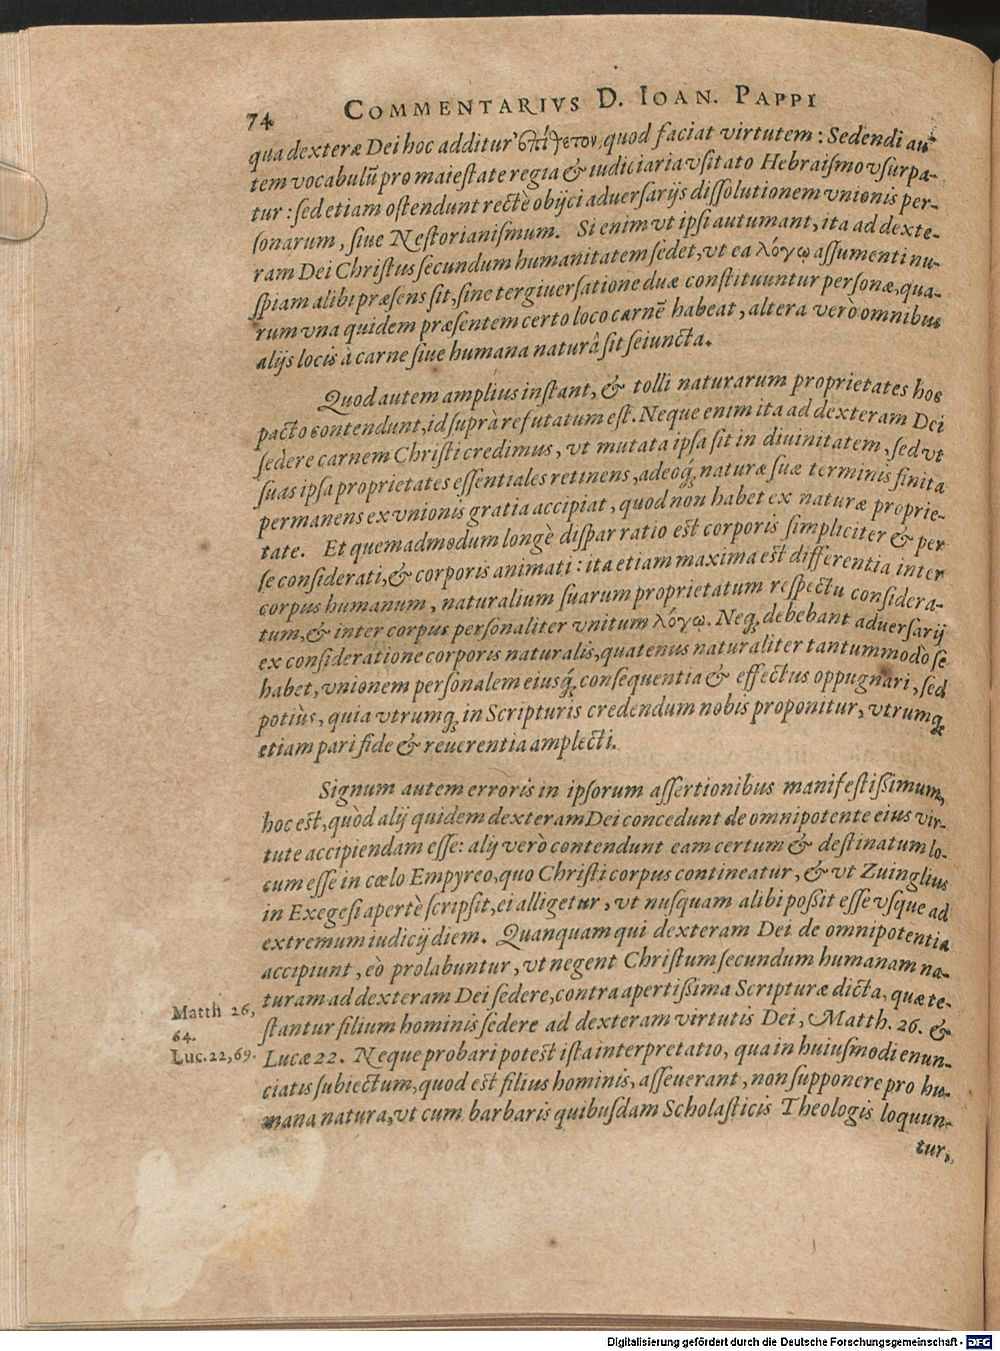 74 COMMENTARIVS D. IOAN. PAPPI
qua dexteræ Dei hoc additur ἐπίθετον, quod faciat virtutem: Sedendi au-
tem vocabulũ pro maiestate regia & iudiciaria vsitato Hebraismo vsurpa-
tur: sed etiam ostendunt rectè obijci aduersarijs dissolutionem vnionis per-
sonarum, siue Nestorianismum. Si enim vt ipsi autumant, ita ad dexte-
ram Dei Christus secundum humanitatem sedet, vt ea λόγῳ assumenti nu-
spiam alibi præsens sit, sine tergiuersatione duæ constituuntur personæ, qua-
rum vna quidem præsentem certo loco carnẽ habeat, altera verò omnibus
alijs locis à carne siue humana naturâ sit seiuncta.
Quod autem amplius instant, & tolli naturarum proprietates hoc
pacto contendunt, id suprà refutatum est. Neque enim ita ad dexteram Dei
sedere carnem Christi credimus, vt mutata ipsa sit in diuinitatem, sed vt
suas ipsa proprietates essentiales retinens, adeoq́; naturæ suæ terminis finita
permanens ex vnionis gratia accipiat, quod non habet ex naturæ proprie-
tate. Et quemadmodum longè dispar ratio est corporis simpliciter & per
se considerati, & corporis animati: ita etiam maxima est differentia inter
corpus humanum, naturalium suarum proprietatum respectu considera-
tum, & inter corpus personaliter vnitum λόγῳ. Neq; debebant aduersarij
ex consideratione corporis naturalis, quatenus naturaliter tantummodo se
habet, vnionem personalem eiusq́; consequentia & effectus oppugnari, sed
potiùs, quia vtrumq; in Scripturis credendum nobis proponitur, vtrumq;
etiam pari fide & reuerentia amplecti.
Signum autem erroris in ipsorum assertionibus manifestissimum,
hoc est, quòd alij quidem dexteram Dei concedunt de omnipotente eius vir-
tute accipiendam esse: alij verò contendunt eam certum & destinatum lo-
cum esse in cœlo Empyreo, quo Christi corpus contineatur, & vt Zuinglius
in Exegesi apertè scripsit, ei alligetur, vt nusquam alibi possit esse vsque ad
extremum iudicij diem. Quanquam qui dexteram Dei de omnipotentia
accipiunt, eò prolabuntur, vt negent Christum secundum humanam na-
turam ad dexteram Dei sedere, contra apertissima Scripturæ dicta, quæ te-
stantur filium hominis sedere ad dexteram virtutis Dei, Matth. 26. &
Lucæ 22. Neque probari potest ista interpretatio, qua in huiusmodi enun-
ciatis subiectum, quod est filius hominis, asseuerant, non supponere pro hu-
mana natura, vt cum barbaris quibusdam Scholasticis Theologis loquun-
tur,
Matth 26,
64.
Luc. 22, 69.
Digitalisierung gefördert durch die Deutsche Forschungsgemeinschaft - DFG